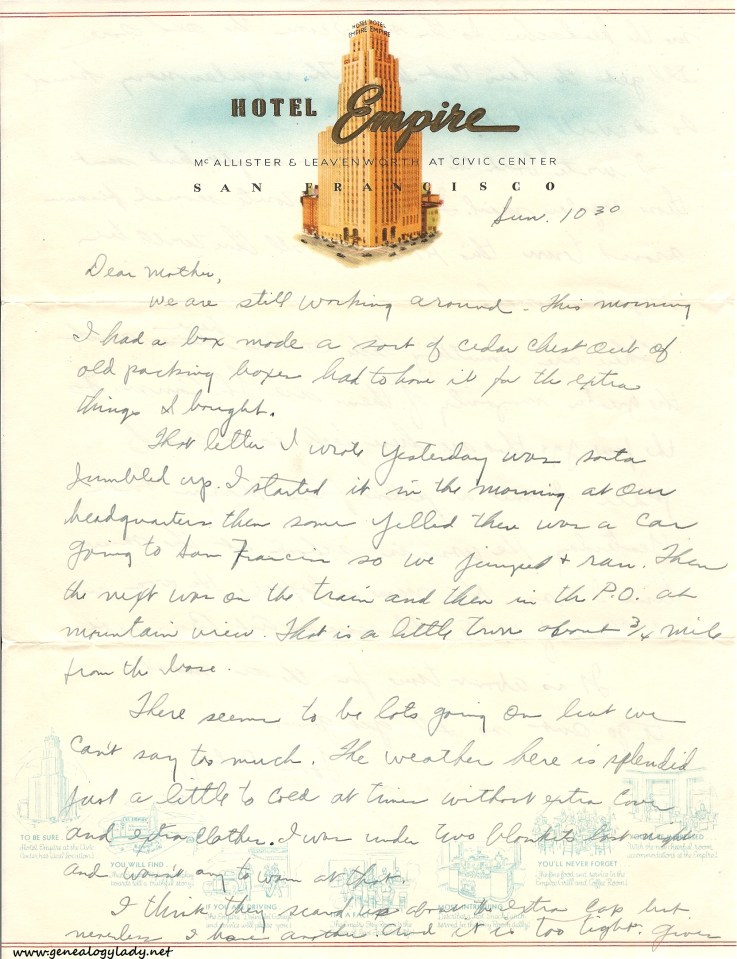 HOTEL HOTEL
EMPIRE EMPIRE
HOTEL Empire
McALLISTER & LEAVENWORTH AT CIVIC CENTER
SAN FRANCISCO
Sun. 10 30
Dear Mother,
We are still working around. This morning
I had a box made a sort of cedar chest out of
old packing boxes had to have it for the extra
things I bought.
That letter I wrote yesterday was sorta
Jumbled up. I started it in the morning at our
headquarters then some yelled there was a car
going to San so we jumped + ran. Then
the next was on the train and then in the P.O. at
mountain view. That is a little town about 3/4 mile
from the base.
There seems to be lots going on but we
can't say too much. The weather here is splendid
just a little to cold at times without extra cover
and extra clothes. I was under two blankets last night
and wasn't any to warm at that.
I think they about the extra cap but
I have another. And it is too tight. Gives
TO BE SURE
Hotel Empire at the Civic
YOU WILL FIND
IF YOU ARE DRIVING
YOU'LL NEVER FORGET
www.genealogylady.net